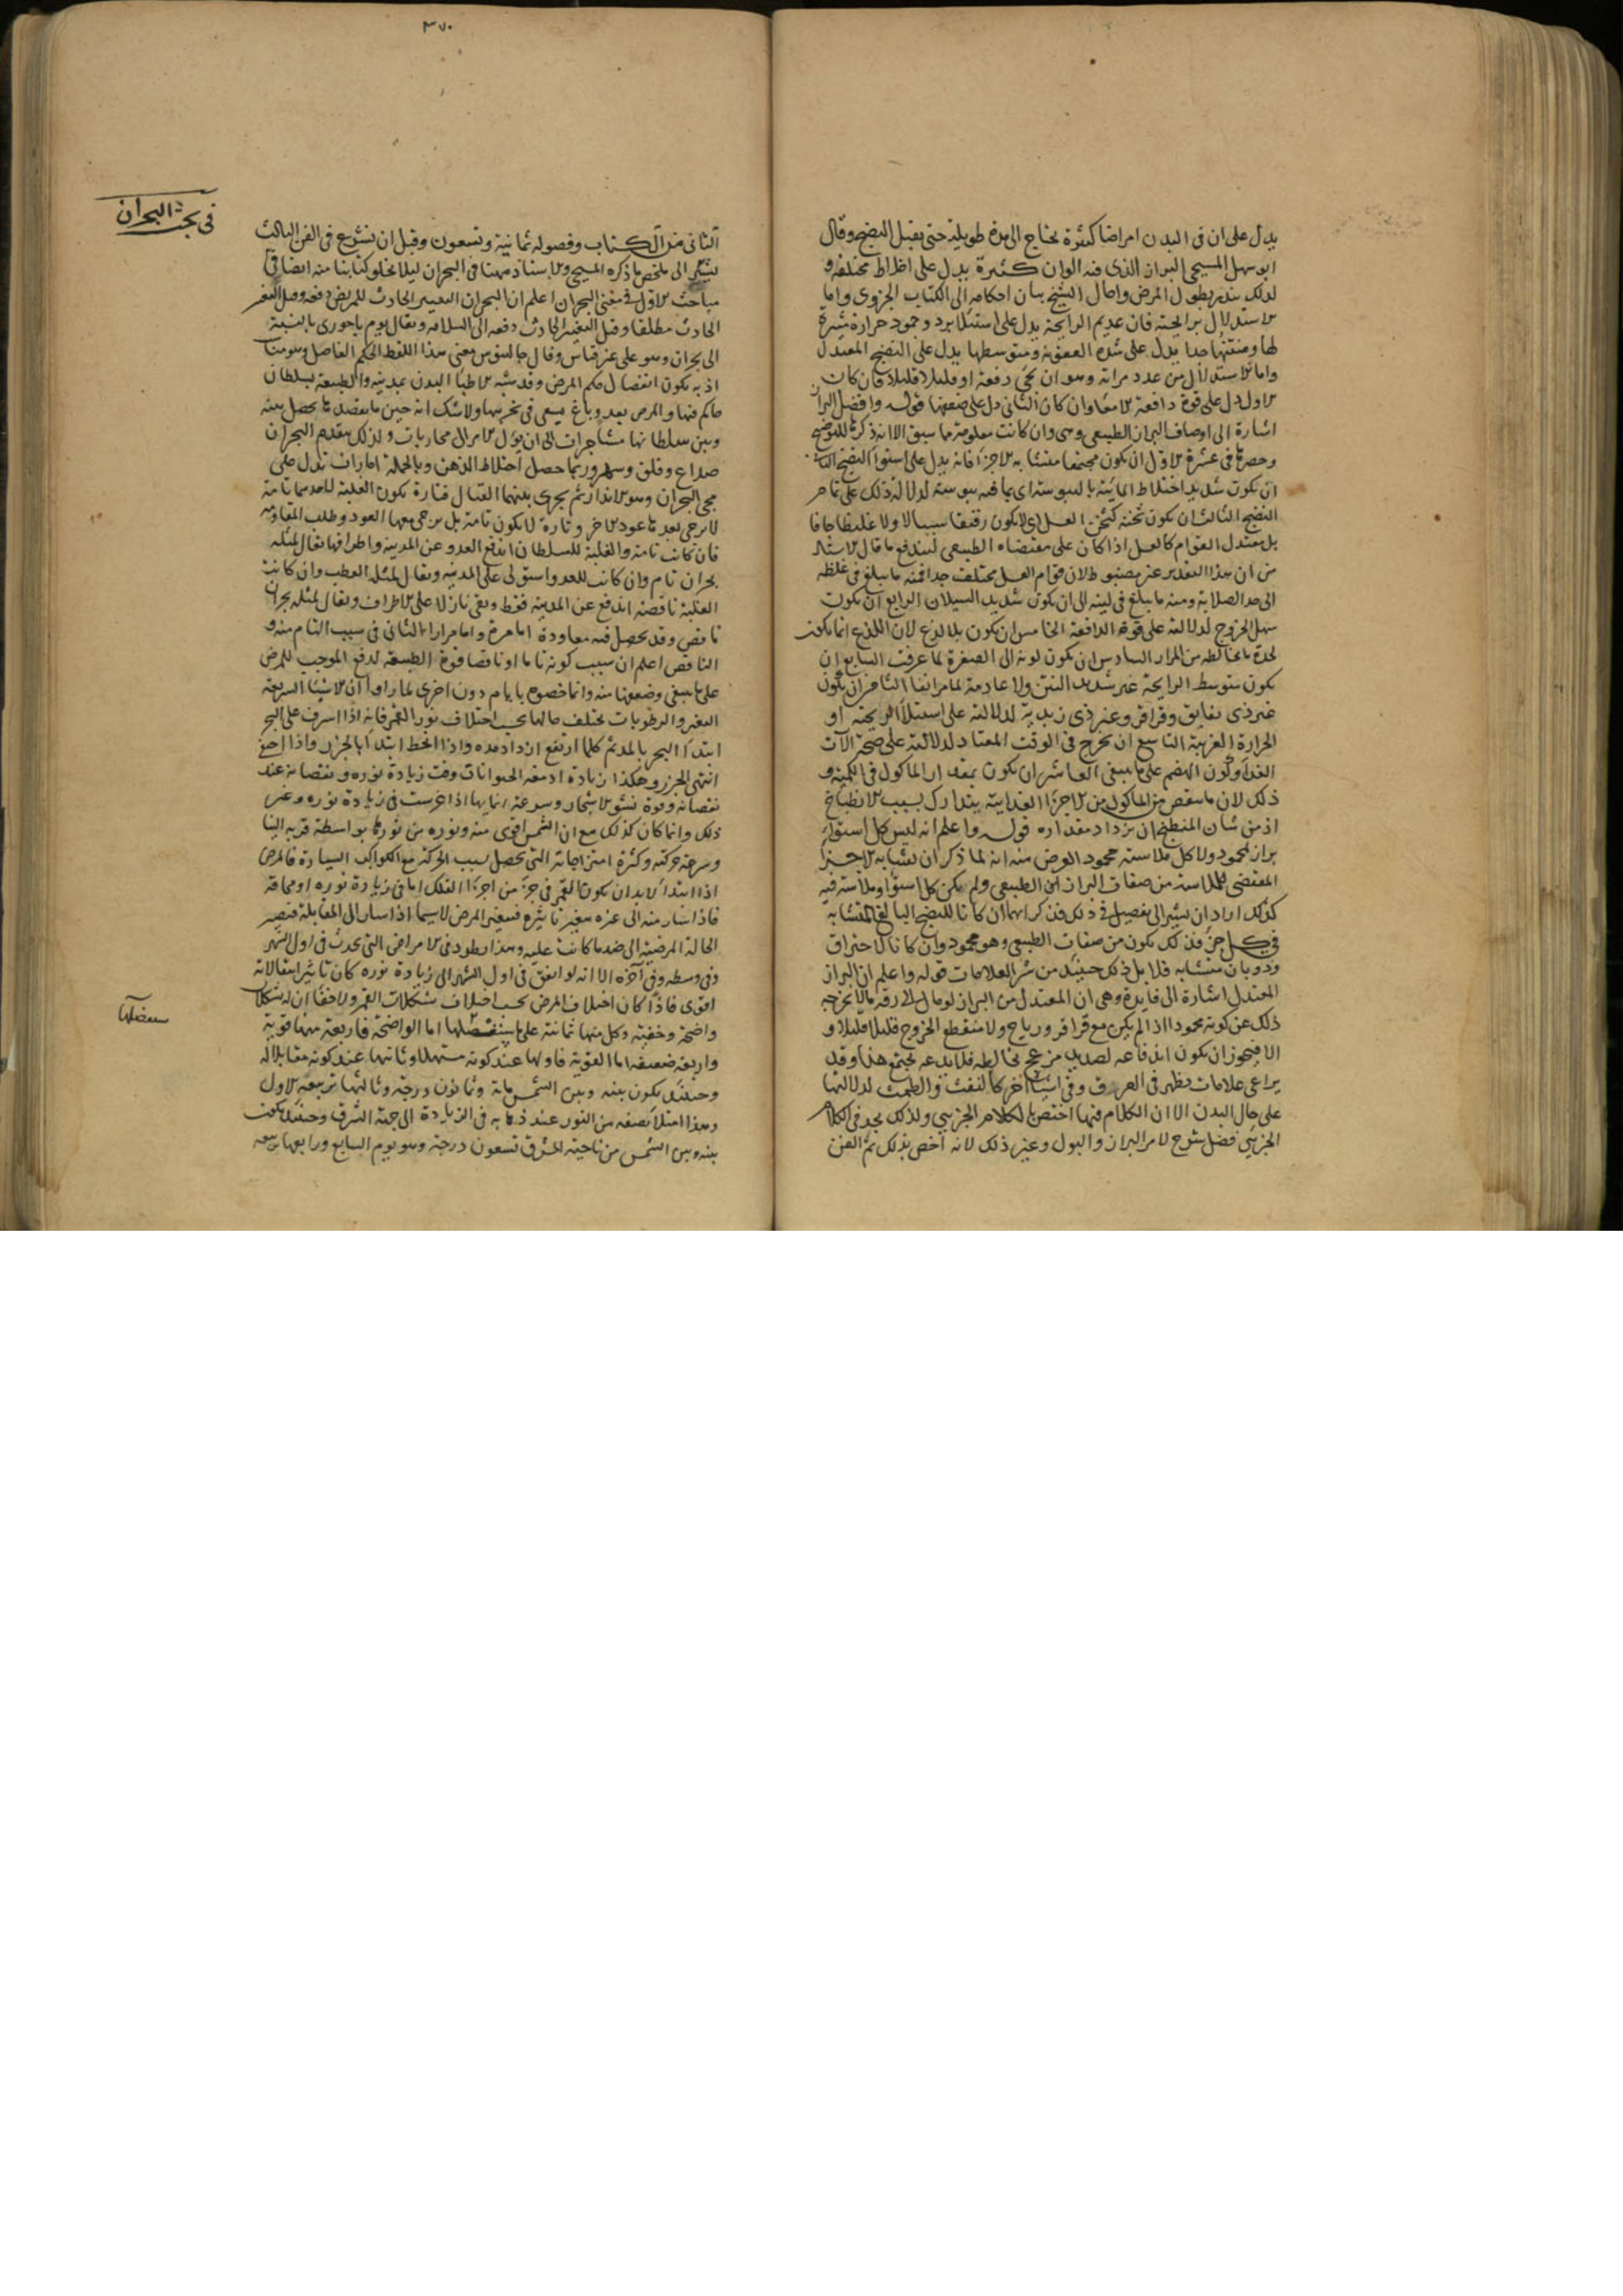 يدل على ان فى البدن امراضا كثيرة تحتاج الى مدة طويلة حتى يقبل النضج وقال
ابو سهل المسيحى البراز الذى فيه الوان كثيرة يدل على اخلاط مختلفة و
لذلك ينذر بطول المرض واحال الشيخ بيان احكامه الى الكتاب الجزوى واما
الاستدلال برايحته فان عديم الرايحة يدل على استيلا برد وخمود حرارة
لها ومنتنها جدا يدل على شدة العفونة ومتوسطها يدل على النضج المعتدل
واما الاستدلال من عدد مراته وهو ان يجى دفعة او قليلا قليلا فان كان
الاول دل على قوة دافعة الامعا وان كان الثانى دل على ضعفها قوله وافضل البراز
اشارة الى اوصاف البراز الطبيعى وهى وان كانت معلومة مما سبق الا انه ذكرها للتوضيح
وحصرها فى عشرة الاول ان يكون مجتمعا متشابه الاجزا فانه يدل على استوا النضج الثانى
ان يكون شديد اختلاط المائية باليبوسة اى بما فيه يبوسة لدلالة ذلك على تمام
النضج الثالث ان يكون ثخنه كثخن العسل اى لا يكون رقيقا سيالا ولا غليظا جافا
بل معتدل القوام كالعسل اذا كان على مقتضاه الطبيعى ليندفع ما قال الاستاذ
من ان هذا التقدير غير مضبوط لان قوام العسل مختلف جدا فمنه ما يبلغ فى غلظه
الى حد الصلابة ومنه ما يبلغ فى لينه الى ان يكون شديد السيلان الرابع ان يكون
سهل الخروج لدلالته على قوة الدافعة الخامس ان يكون بلا لذع لان اللذع انما يكون
لحدة ما يخالطه من المرار السادس ان يكون لونه الى الصفرة لما عرفت السابع ان
يكون متوسط الرايحة غير شديد النتن ولا عادمه لما مر انفا الثامن ان يكون
غير ذى بقابق وقراقر وغير ذى زبدية لدلالته على استيلا الريحية او
الحرارة الغريبة التاسع ان يخرج فى الوقت المعتاد لدلالته على صحة الآت
الغذا وكون الهضم على ما ينبغى العاشر ان يكون بمقدار الماكول فى الكمية و
ذلك لان ما ينقص من الماكول من الاجزا الغذايية يتدارك بسبب الانطباخ
اذ من شان المنطبخ ان يزداد مقداره قوله واعلم انه ليس كل استوا
براز محمود ولا كل ملاسته محمود الغرض منه انه لما ذكر ان تشابه الاجزا
المقتضى للملاسة من صفات البراز الطبيعى ولم يكن كل استوا وملاسة فيه
كذلك اراد ان يشير الى تفصيل فى ذلك فذكر انهما ان كانا للنضج البالغ المتشابه
فى كل جز فذلك يكون من صفات الطبيعى وهو محمود وان كانا لاحتراق
وذوبان متشابه فلا بل ذلك حينئذ من شر العلامات قوله واعلم ان البراز
المعتدل اشارة الى فايدة وهى ان المعتدل من البراز لو مال الى رقة ما لا يخرجه
ذلك عن كونه محمودا اذا لم يكن مع قراقر ورياح ولا منقطع الخروج قليلا قليلا و
الا فيجوز ان يكون اندفاعه لصديد مزعج يخالطه فلا يدعه يجتمع هذا وقد
يراعى علامات تظهر فى العرق وفى اشيا اخر كالنفث والطمث لدلالتها
على حال البدن الا ان الكلام فيها اختص بالكلام الجزئى ولذلك يجد فى الكلام
الجزئى فضل شرح لامر البراز والبول وغير ذلك لانه اخص بذلك تم الفن
٣٧٠
فى بحث البحران
الثانى من الكتاب وفصوله ثمانية وتسعون وقبل ان نشرع فى الفن الثالث
نشير الى ملخص ما ذكره المسيحى والاستاذ ههنا فى البحران ليلا يخلو كتابنا منه ايضا فى
مباحث الاول فى معنى البحران اعلم ان البحران التغيير الحادث للمريض دفعة وقيل التغير
الحادث مطلقا وقيل التغير الحادث دفعة الى السلامة ويقال يوم باحورى بالنسبة
الى بحران وهو على غير قياس وقال جالينوس معنى هذا اللفظ الحكم الفاصل وهو هنا
اذ به يكون انفصال حكم المرض وقد شبه الاطبا البدن بمدينة والطبيعة بسلطان
حاكم فيها والمرض بعدو باغ يسعى فى تخريبها ولا شك انه حين ما يقصدها يحصل بينه
وبين سلطانها مشاجرات الى ان يؤل الامر الى محاربات ولذلك يتقدم البحران
صداع وقلق وسهر وربما حصل اختلاط الذهن وبالجملة امارات تدل على
مجى البحران وهو الانذار ثم يجرى بينهما القتال فتارة يكون الغلبة لاحدهما تامة
لا يرجى بعدها عود الاخر وتارة لا يكون تامة بل يرجى معها العود وطلب المقاومة
فان كانت تامة والغلبة للسلطان اندفع العدو عن المدينة واطرافها يقال لمثله
بحران تام وان كانت للعدو استولى على المدينة ويقال لمثله العطب وان كانت
الغلبة ناقصة اندفع عن المدينة فقط وبقى نازلا على الاطراف ويقال لمثله بحران
ناقص وقد يحصل فيه معاودة اما مرة واما مرارا الثانى فى سبب التام منه و
الناقص اعلم ان سبب كونه تاما او ناقصا قوة الطبيعة لدفع الموجب للمرض
على ما ينبغى وضعفها منه وانما خصوه بايام دون اخرى لما راوا ان الاشيا السريعة
التغير والرطوبات تختلف حالها بحسب اختلاف نور القمر فانه اذا اشرف على البحر
ابتدا البحر بالمد ثم كلما ارتفع ازداد مده واذا انحط ابتدا بالجزر واذا
انتهى الجزر وهكذا زيادة ادمغة الحيوانات وقت زيادة نوره ونقصانه عند
نقصانه وقوة نشو الاشجار وسرعة انمايها اذا غرست فى زيادة نوره وغير
ذلك وانما كان كذلك مع ان الشمس اقوى منه ونوره من نورها بواسطة قربه الينا
وسرعة حركته وكثرة امتزاجاته التى يحصل بسبب الحركة مع الكواكب السيارة فالمرض
اذا ابتدا لا بد ان يكون القمر فى جز من اجزا الفلك اما فى زيادة نوره او محاقه
فاذا سار منه الى غيره تغير تاثيره فيتغير المرض لا سيما اذا سار الى المقابلة فتصير
الحالة المرضية الى ضد ما كانت عليه وهذا يطرد فى الامراض التى تحدث فى اول الشهر
وفى وسطه وفى آخره الا انه لو اتفق فى اول الشهر الى زيادة نوره كان تاثير انتقالاته
اقوى فاذا كان اختلاف المرض بحسب اختلاف تشكلات القمر ولا خفا ان له تشكلات
واضحة وخفية وكل منها ثمانية على ما سنفصلها اما الواضحة فاربعة منها قوية
واربعة ضعيفة اما القوية فاولها عند كونه مستهلا وثانيها عند كونه مقابلا له
وحينئذ يكون بينه وبين الشمس ماية وثمانون درجة وثالثها تربيعه الاول
وهذا امتلا نصفه من النور عند ذهابه فى الزيادة الى جهة الشرق وحينئذ يكون
بينه وبين الشمس من ناحية المشرق تسعون درجة وهو يوم السابع ورابعها تربيعه